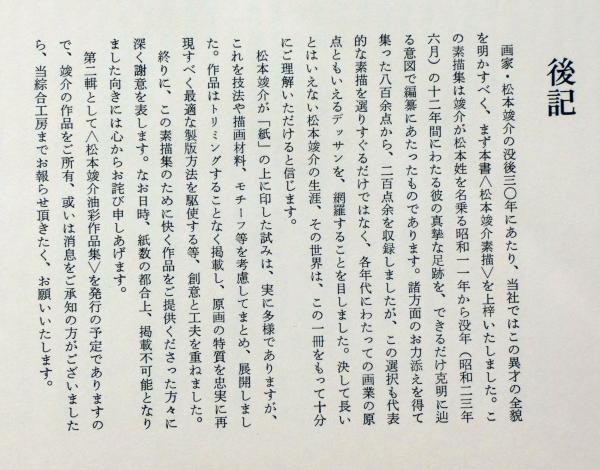 後記
画家・松本竣介の没後三〇年にあたり、当社ではこの異才の全貌
を明かすべく、まず本書〈松本竣介素描〉を上梓いたしました。こ
の素描集は竣介が松本姓を名乗る昭和一一年から没年（昭和二三年
六月）の十二年間にわたる彼の真摯な足跡を、できるだけ克明に辿
る意図で編纂にあたったものであります。諸方面のお力添えを得て
集った八百余点から、二百点余を収録しましたが、この選択も代表
的な素描を選りすぐるだけではなく、各年代にわたっての画業の原
点ともいえるデッサンを、網羅することを目しました。決して長い
とはいえない松本竣介の生涯、その世界は、この一冊をもって十分
にご理解いただけると信じます。
松本竣介が「紙」の上に印した試みは、実に多様でありますが、
これを技法や描画材料、モチーフ等を考慮してまとめ、展開しまし
た。作品はトリミングすることなく掲載し、原画の特質を忠実に再
現すべく最適な製版方法を駆使する等、創意と工夫を重ねました。
終りに、この素描集のために快く作品をご提供くださった方々に
深く謝意を表します。なお日時、紙数の都合上、掲載不可能となり
ました向きには心からお詫び申しあげます。
第二輯として〈松本竣介油彩作品集〉を発行の予定でありますの
で、竣介の作品をご所有、或いは消息をご承知の方がございました
ら、当綜合工房までお報らせ頂きたく、お願いいたします。